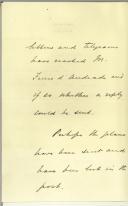 letters and telegrams
have reached Mr.
and
if so whether a reply
could be sent.
Perhaps the plans
have been sent and
have been lost in the
post.